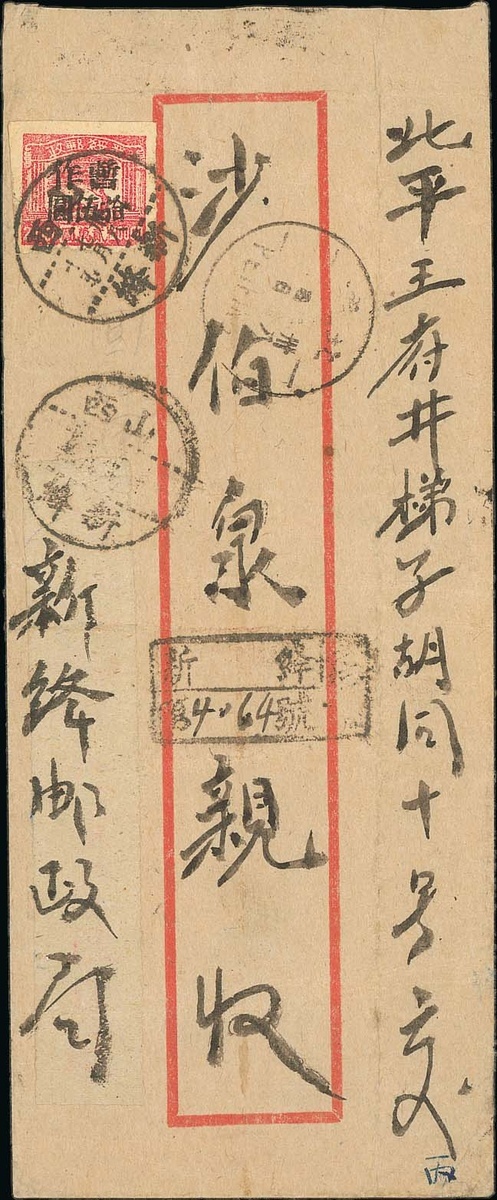 北平王府井梯子胡同十号交
沙伯泉親收
新絳邮政局
暫作
山西
新絳
新絳
4064號
丙